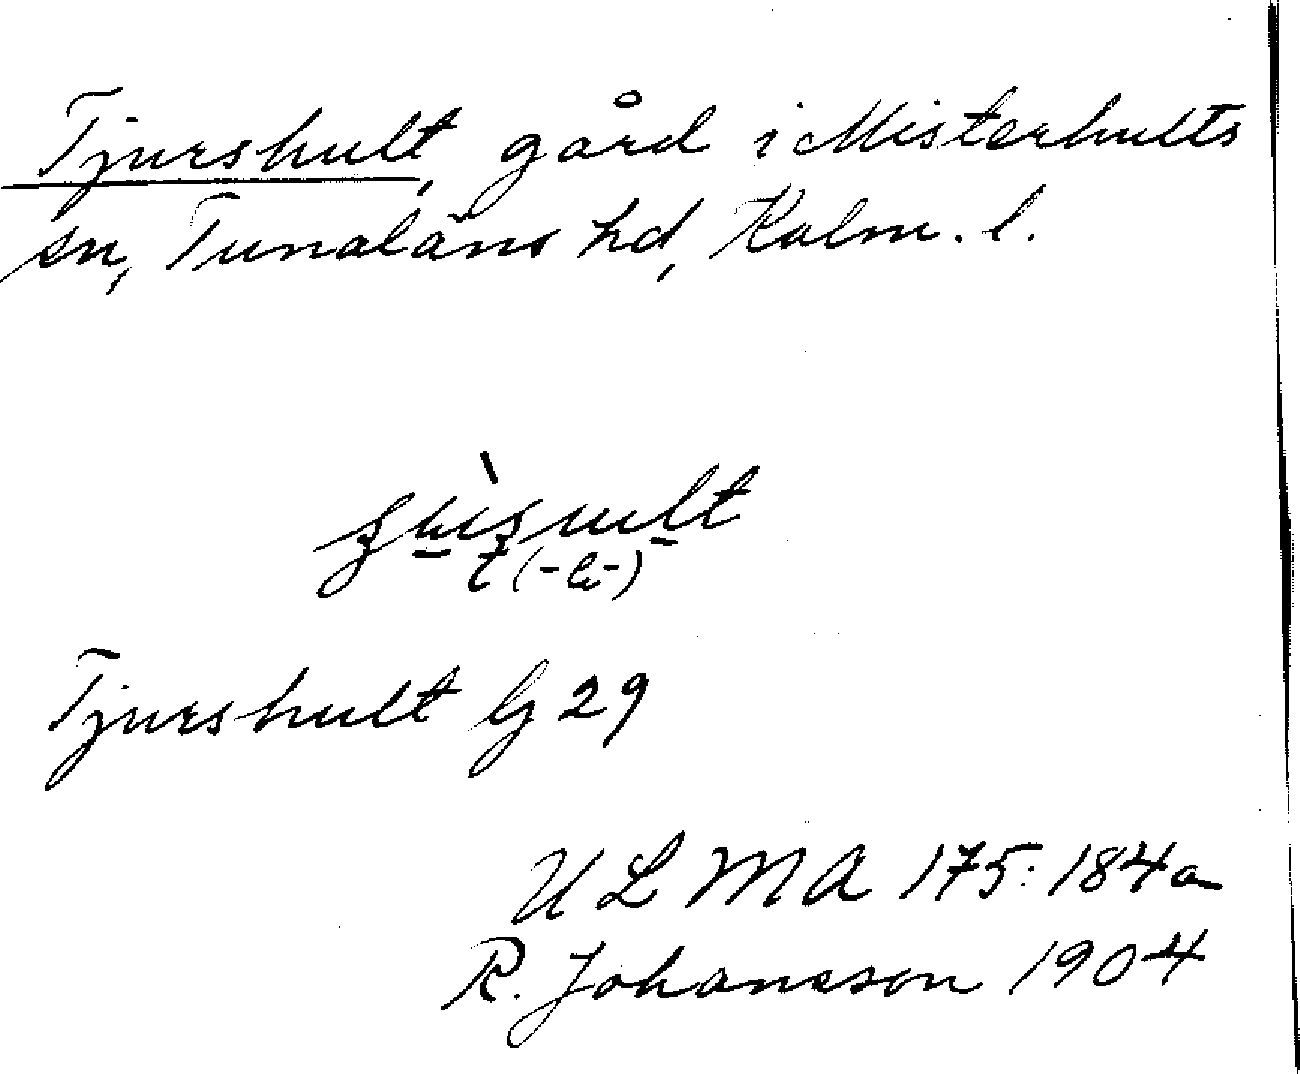 Tjurshult, gård i Misterhults
sn, Tunaläns hd, Kalm. l.
Tjurshult Gj 29
ULMA 175:184a
R. Johansson 1904